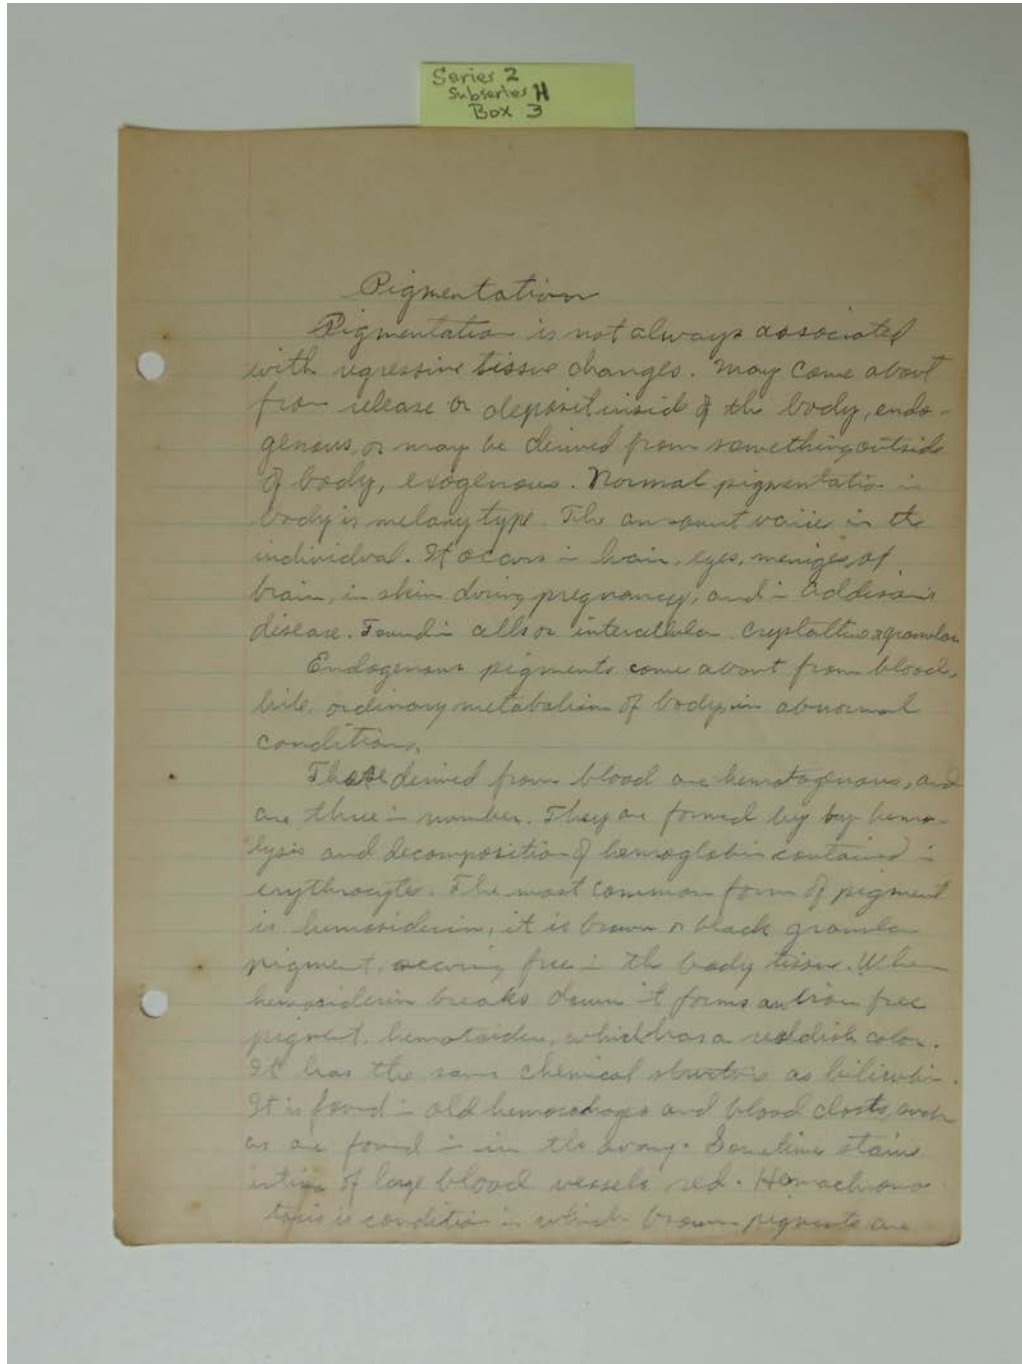 Series 2
Subseries H
Box 3
Pigmentation
Pigmentation is not always associated
with regressive tissue changes. May come about
from release or deposit insid of the body, endo-
genous, or may be derived from something outside
of body, exogenous. Normal pigmentation in
body is melany type. The amount varies in the
individual. It occurs in hair, eyes, meniges of
brain, in skin during pregnancy, and in Addison's
disease. Found in cells or intercellular. Crystalline or granular
Endogenous pigments come about from blood,
bile, ordinary metabolism of body, in abnormal
conditions.
Those derived from blood are hematogenous, and
are three in number. They are formed by by hemo-
lysis and decomposition of hemoglobin contained in
erythrocytes. The most common form of pigment
is hemosiderin, it is brown or black granular
pigment, occuring free in the body tissue. When
hemosiderin breaks down it forms an iron free
pigment, hematoiden, which has a reddish color.
It has the same chemical structure as bilirubin.
It is found in old hemorrhages and blood clots, such
as are found in in the ovary. Sometimes stains
intima of large blood vessels red. Hemachroma-
tosis is condition in which brown pigments are